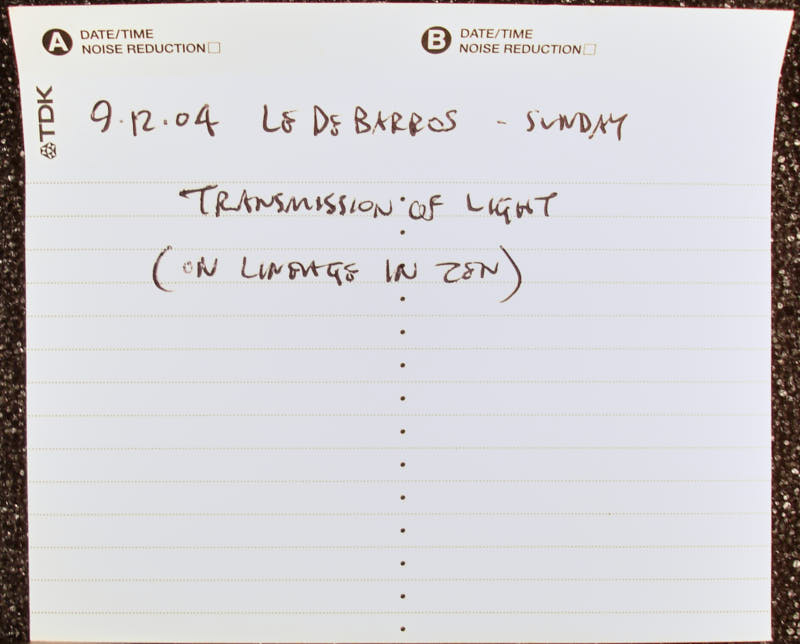 A DATE/TIME NOISE REDUCTION
B DATE/TIME NOISE REDUCTION
TDK
9.12.04 LE DE BARROS - SUNDAY
TRANSMISSION OF LIGHT
(ON LINEAGE IN ZEN)